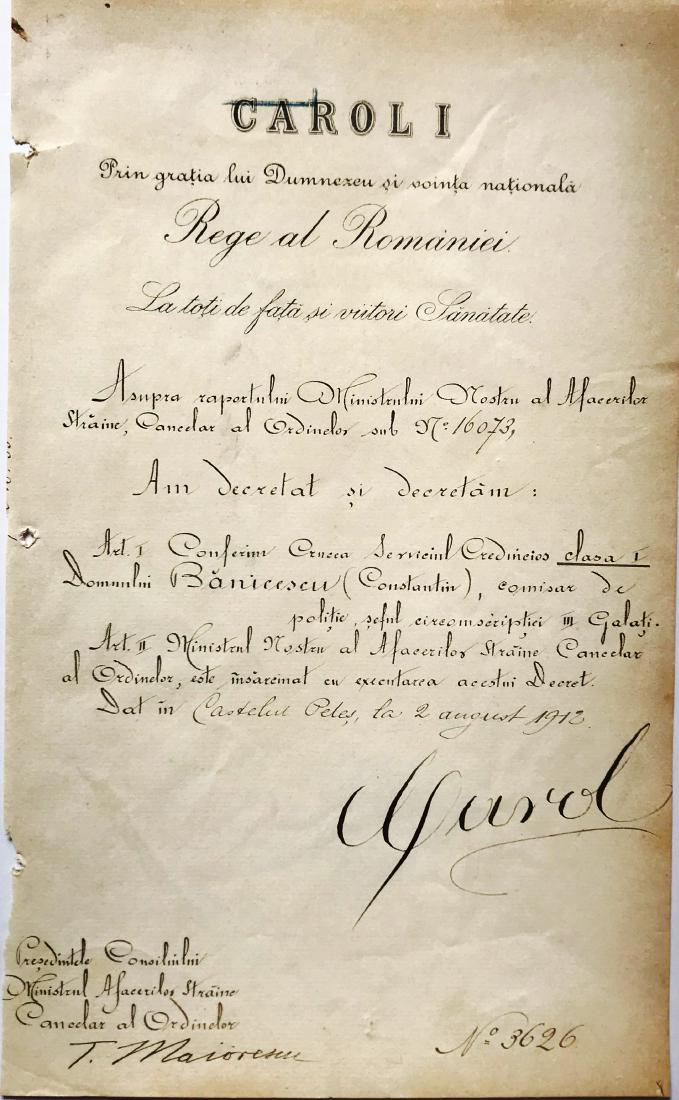 CAROL I
Prin grația lui Dumnezeu și voința națională
Rege al României.
La toți de față și viitori Sănătate.
Asupra raportului Ministrului Nostru al Afacerilor
Străine, Cancelar al Ordinelor sub No. 16073,
Am decretat și decretăm :
Art. I Conferim Crucea Serviciul Credincios clasa I
Domnului Bănicescu (Constantin), comisar de
poliție, șeful circomscripției III Galați.
Art. II Ministrul Nostru al Afacerilor Străine Cancelar
al Ordinelor, este însărcinat cu executarea acestui Decret.
Dat în Castelul Peleș, la 2 august 1912.
Carol
Președintele Consiliului
Ministrul Afacerilor Străine
Cancelar al Ordinelor
T. Maiorescu
No. 3626